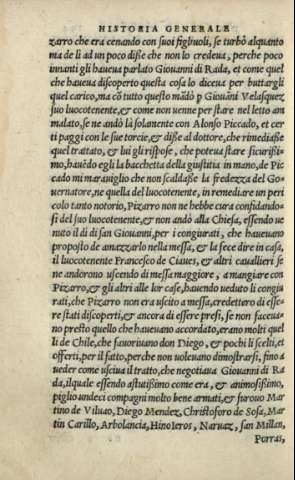 HISTORIA GENERALE
zarro che era cenando con suoi figliuoli, se turbò alquanto
ma de lì ad un poco disse che non lo credeua, perche poco
innanti gli haueua parlato Giouanni di Rada, et come quel
che haueua discoperto questa cosa lo diceua per buttargli
quel carico, ma cō tutto questo mādò p Giouāni Velasquez
suo luocotenente, & come non uenne per stare nel letto am
malato, se ne andò là solamente con Alonso Piccado, et cer
ti paggi con le sue torcie, & disse al dottore, che rimediasse
quel trattato, & lui gli rispose, che poteua stare sicurissi-
mo, hauēdo egli la bacchetta della giustitia in mano, de Pic
cado mi marauiglio che non scaldasse la fredezza del Go-
uernatore, ne quella del luocotenente, in remediare un peri
colo tanto notorio, Pizarro non ne hebbe cura confidando-
si del suo luocotenente, & non andò alla Chiesa, essendo ue
nuto il dì di san Giouanni, per i congiurati, che haueuano
proposito de amazzarlo nella messa, & la fece dire in casa,
il luocotenente Francesco de Ciaues, & altri cauallieri se
ne andorono uscendo di messa maggiore, a mangiare con
Pizarro, & gli altri alle lor case, hauendo ueduto li congiu
rati, che Pizarro non era uscito a messa, credettero di esse-
re stati discoperti, & ancora di essere presi, se non faceua-
no presto quello che haueuano accordato, erano molti quel
li de Chile, che fauoriuano don Diego, & pochi li scelti, et
offerti, per il fatto, perche non uoleuano dimostrarsi, fino a
ueder come usciua il tratto, che negotiaua Giouanni di Ra
da, ilquale essendo astutissimo come era, & animosissimo,
piglio undeci compagni molto bene armati, & furouo Mar
tino de Viluao, Diego Mendez, Christoforo de Sosa, Mar
tin Carillo, Arbolancia, Hinoieros, Naruaz, san Millan,
Porras,